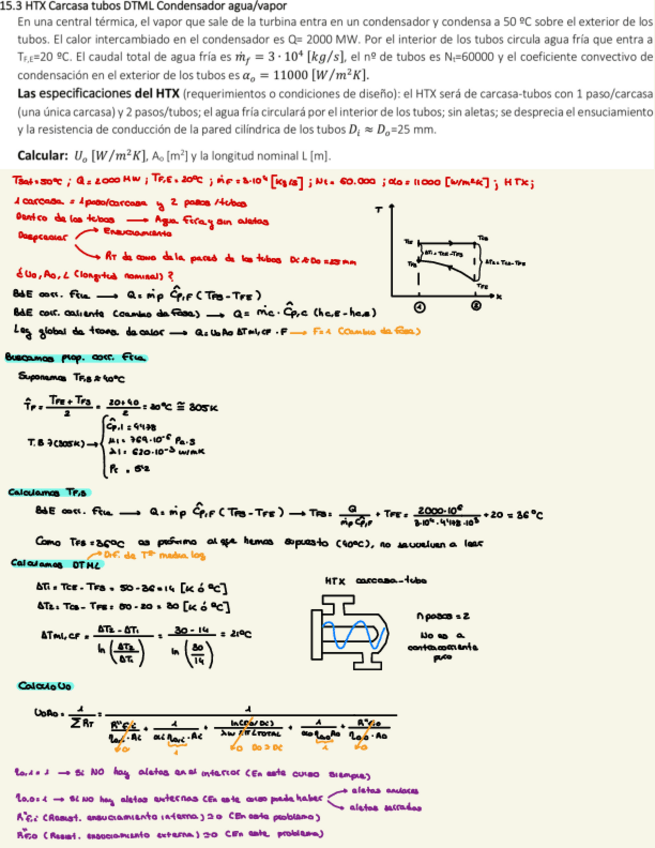 15.3 HTX Carcasa tubos DTML Condensador agua/vapor
En una central térmica, el vapor que sale de la turbina entra en un condensador y condensa a 50 ºC sobre el exterior de los
tubos. El calor intercambiado en el condensador es Q= 2000 MW. Por el interior de los tubos circula agua fría que entra a
T_F,E=20 ºC. El caudal total de agua fría es ṁ_f = 3 · 10⁴ [kg/s], el nº de tubos es N_t=60000 y el coeficiente convectivo de
condensación en el exterior de los tubos es α_o = 11000 [W/m²K].
Las especificaciones del HTX (requerimientos o condiciones de diseño): el HTX será de carcasa-tubos con 1 paso/carcasa
(una única carcasa) y 2 pasos/tubos; el agua fría circulará por el interior de los tubos; sin aletas; se desprecia el ensuciamiento
y la resistencia de conducción de la pared cilíndrica de los tubos D_i ≈ D_o=25 mm.
Calcular: U_o [W/m²K], A_o [m²] y la longitud nominal L [m].
Tsat=50ºC ; Q = 2000 MW ; T_F,E = 20ºC ; ṁ_F = 3·10⁴ [kg/s] ; Nt = 60.000 ; αo = 11000 [W/m²K] ; HTX;
1 carcasa = 1 paso/carcasa y 2 pasos /tubos
Dentro de los tubos → Agua fría y sin aletas
Despreciar → Ensuciamiento
→ RT de cond de la pared de los tubos Di ≈ Do = 25 mm
¿Uo, Ao, L (longitud nominal)?
T
ΔT1 = TCE - TFS
ΔT2 = TCS - TFE
TFE
x
① ②
BdE corr. Fría → Q = ṁF Ĉp,F (TFS - TFE)
BdE corr. caliente (cambio de fase) → Q = ṁc · Ĉp,c (hc,E - hc,s)
Ley global de trans. de calor → Q = Uo Ao ΔTml,CF · F → F=1 (Cambio de fase)
Buscamos prop. corr. Fría
Suponemos TF,S ≈ 40ºC
T̂F = (TFE + TFS)/2 = (20+40)/2 = 30ºC ≅ 305K
T.B 7 (305K) →
Ĉp,l = 4178
μl = 769·10⁻⁶ Pa·s
λl = 620·10⁻³ W/mK
Pr = 5'2
Calculamos TF,S
BdE corr. Fría → Q = ṁF Ĉp,F (TFS - TFE) → TFS = Q/(ṁF Ĉp,F) + TFE = (2000·10⁶)/(3·10⁴ · 4'178·10³) + 20 = 36ºC
Como TFS = 36ºC es próximo al que hemos supuesto (40ºC), no se vuelven a leer
Calculamos DTML → Dif. de Tª media log
ΔT1 = TCE - TFS = 50 - 36 = 14 [K ó ºC]
ΔT2 = TCS - TFE = 50 - 20 = 30 [K ó ºC]
ΔTml,CF = (ΔT2 - ΔT1)/ln(ΔT2/ΔT1) = (30 - 14)/ln(30/14) = 21ºC
HTX carcasa-tubo
n pasos = 2
No es a
contracorriente
puro
Calculo Uo
UoAo = 1/ΣRT = 1/(R"f,i/(ηo,i · Ai) + 1/(αi ηo,i · Ai) + ln(Do/Di)/(λw 2π LTOTAL) + 1/(αo ηo,o Ao) + R"f,o/(ηo,o · Ao))
≈0 1 ≈0 Do ≈ Di 1 ≈0
ηo,i = 1 → Si NO hay aletas en el interior (En este curso siempre)
ηo,o = 1 → Si NO hay aletas externas (En este curso puede haber → aletas anulares
→ aletas
R"f,i (Resist. ensuciamiento interna) ≈ 0 (En este problema)
R"f,o (Resist. ensuciamiento externa) ≈ 0 (En este problema)